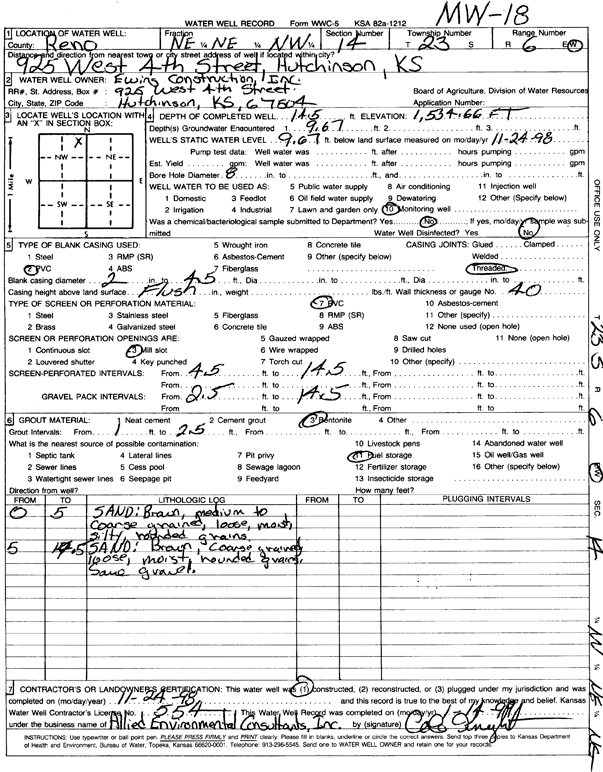 WATER WELL RECORD Form WWC-5 KSA 82a-1212 MW-18
1 LOCATION OF WATER WELL: Fraction Section Number Township Number Range Number
County: Reno NE ¼ NE ¼ NW ¼ 14 T 23 S R 6 E/W
Distance and direction from nearest town or city street address of well if located within city?
925 West 4th Street, Hutchinson, KS
2 WATER WELL OWNER: Ewing Construction, Inc.
RR#, St. Address, Box # : 925 West 4th Street Board of Agriculture, Division of Water Resources
City, State, ZIP Code : Hutchinson, KS, 67504 Application Number:
3 LOCATE WELL'S LOCATION WITH AN "X" IN SECTION BOX:
N
X
NW NE
W E
SW SE
S
1 Mile
4 DEPTH OF COMPLETED WELL 14.5 ft. ELEVATION: 1,534.66 FT
Depth(s) Groundwater Encountered 1. 9.67 ft. 2. ft. 3. ft.
WELL'S STATIC WATER LEVEL 9.67 ft. below land surface measured on mo/day/yr 11-24-98
Pump test data: Well water was ft. after hours pumping gpm
Est. Yield gpm: Well water was ft. after hours pumping gpm
Bore Hole Diameter 8 in. to ft., and in. to ft.
WELL WATER TO BE USED AS: 5 Public water supply 8 Air conditioning 11 Injection well
1 Domestic 3 Feedlot 6 Oil field water supply 9 Dewatering 12 Other (Specify below)
2 Irrigation 4 Industrial 7 Lawn and garden only 10 Monitoring well
Was a chemical/bacteriological sample submitted to Department? Yes No ; If yes, mo/day/yr sample was submitted Water Well Disinfected? Yes No
5 TYPE OF BLANK CASING USED: 5 Wrought iron 8 Concrete tile CASING JOINTS: Glued Clamped
1 Steel 3 RMP (SR) 6 Asbestos-Cement 9 Other (specify below) Welded
2 PVC 4 ABS 7 Fiberglass Threaded
Blank casing diameter 2 in. to 4.5 ft., Dia in. to ft., Dia in. to ft.
Casing height above land surface Flush in., weight lbs./ft. Wall thickness or gauge No. 40
TYPE OF SCREEN OR PERFORATION MATERIAL: 7 PVC 10 Asbestos-cement
1 Steel 3 Stainless steel 5 Fiberglass 8 RMP (SR) 11 Other (specify)
2 Brass 4 Galvanized steel 6 Concrete tile 9 ABS 12 None used (open hole)
SCREEN OR PERFORATION OPENINGS ARE: 5 Gauzed wrapped 8 Saw cut 11 None (open hole)
1 Continuous slot 3 Mill slot 6 Wire wrapped 9 Drilled holes
2 Louvered shutter 4 Key punched 7 Torch cut 10 Other (specify)
SCREEN-PERFORATED INTERVALS: From 4.5 ft. to 14.5 ft., From ft. to ft.
From ft. to ft., From ft. to ft.
GRAVEL PACK INTERVALS: From 2.5 ft. to 14.5 ft., From ft. to ft.
From ft. to ft., From ft. to ft.
6 GROUT MATERIAL: 1 Neat cement 2 Cement grout 3 Bentonite 4 Other
Grout Intervals: From 1 ft. to 2.5 ft., From ft. to ft., From ft. to ft.
What is the nearest source of possible contamination: 10 Livestock pens 14 Abandoned water well
1 Septic tank 4 Lateral lines 7 Pit privy 11 Fuel storage 15 Oil well/Gas well
2 Sewer lines 5 Cess pool 8 Sewage lagoon 12 Fertilizer storage 16 Other (specify below)
3 Watertight sewer lines 6 Seepage pit 9 Feedyard 13 Insecticide storage
Direction from well? How many feet?
FROM TO LITHOLOGIC LOG FROM TO PLUGGING INTERVALS
0 5 SAND: Brown, medium to
coarse grained, loose, moist,
silty, rounded grains.
5 14.5 SAND: Brown, coarse grained,
loose, moist, rounded grains,
some gravel.
7 CONTRACTOR'S OR LANDOWNER'S CERTIFICATION: This water well was (1) constructed, (2) reconstructed, or (3) plugged under my jurisdiction and was
completed on (mo/day/year) 11-24-98 and this record is true to the best of my knowledge and belief. Kansas
Water Well Contractor's License No. 554 This Water Well Record was completed on (mo/day/yr)
under the business name of Allied Environmental Consultants, Inc. by (signature)
INSTRUCTIONS: Use typewriter or ball point pen. PLEASE PRESS FIRMLY and PRINT clearly. Please fill in blanks, underline or circle the correct answers. Send top three copies to Kansas Department
of Health and Environment, Bureau of Water, Topeka, Kansas 66620-0001. Telephone: 913-296-5545. Send one to WATER WELL OWNER and retain one for your records.
OFFICE USE ONLY
T 23 S R 6 EW SEC. 14 ¼ NW ¼ NE ¼ NE